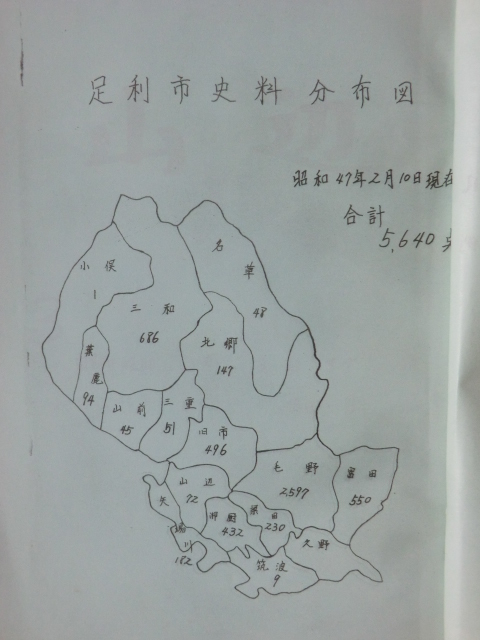 足利市史料分布図
昭和47年2月10日現在
合計
5,640点
名草
48
小俣
1
三和
686
北郷
147
葉鹿
94
山前
45
三重
51
旧市
496
毛野
2,597
富田
550
山辺
72
矢場川
182
御厨
432
梁田
230
久野
筑波
9